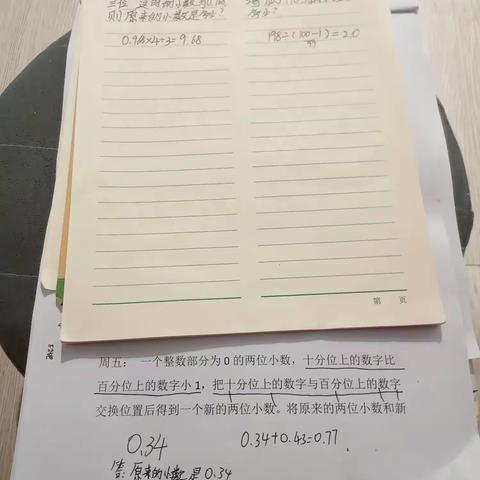 三位
则原来的小数是多少?
多少?
0.968×4÷3=9.68
198÷(100-1)=2.0
99
第 页
周五: 一个整数部分为 0 的两位小数,十分位上的数字比
百分位上的数字小 1,把十分位上的数字与百分位上的数字
交换位置后得到一个新的两位小数。将原来的两位小数和新
0.34
0.34+0.43=0.77
答:原来的小数是0.34